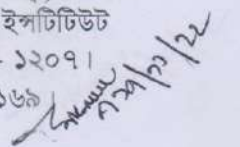 ইন্সটিটিউট
- ১২০৭।
১৬৯
২৯/১১/২২